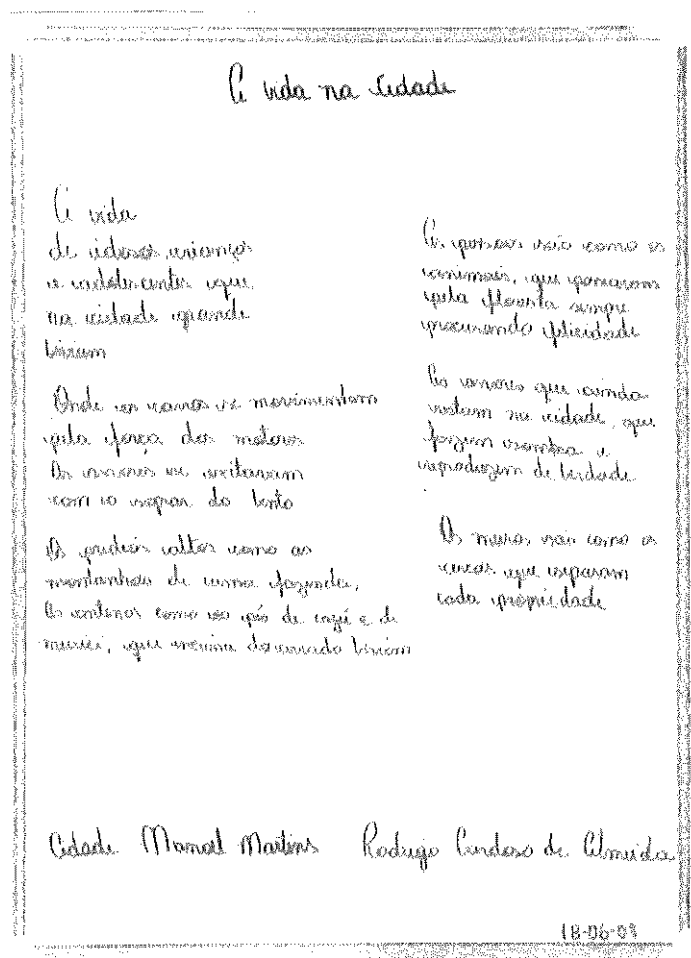 A vida na cidade
A vida
de idosos, crianças
e adolescentes que
na cidade grande
viviam
Onde os carros se movimentam
pela força dos motores
As arvores se
com o sopar do vento
Os predios altos como as
montanhas de uma fazenda,
As antenas como os pés de cajú e de
murici, que
As pessoas são como os
animais, que passavam
pela floresta sempre
procurando felicidade
As arvores que ainda
restam na cidade, que
fazem sombra e
reproduzem de verdade
Os muros são como as
cercas que separam
cada propiedade
Cidade Manoel Martins Rodrigo Cardoso de Almeida
18-06-09